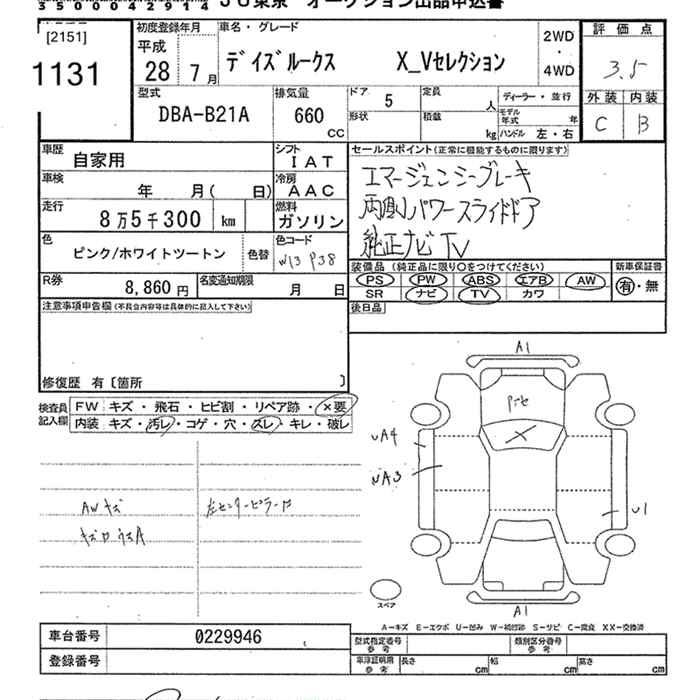 35000042914 JU東京 オークション出品申込書
[2151]
1131
初度登録年月
平成
28年 7月
車名・グレード
デイズルークス X_Vセレクション
2WD
・
4WD
評価点
3.5
外装 内装
C B
型式
DBA-B21A
排気量
660
CC
ドア 5
形状
定員 人
積載 kg
ディーラー・並行
モデル年式 年
ハンドル 左・右
車歴
自家用
シフト
IAT
車検 年 月( 日)
冷房
AAC
走行
8万5千300 km
燃料
ガソリン
色
ピンク/ホワイトツートン
色替
色コード
W13 P38
R券
8,860円
名変通知期限
月 日
セールスポイント(正常に機能するものに限ります)
エマージェンシーブレーキ
両側パワースライドドア
純正ナビTV
装備品 (純正品に限り○をつけてください)
PS PW ABS エアB AW
SR ナビ TV カワ
新車保証書
有・無
後日品
注意事項申告欄(不具合内容等は具体的に記入して下さい)
修復歴 有〔箇所 〕
検査員記入欄
FW キズ・飛石・ヒビ割・リペア跡・×要
内装 キズ・汚レ・コゲ・穴・スレ・キレ・破レ
AWキズ
左センターピラー
A1
UA4
X
U1
A1
スペア
A-キズ E-エクボ U-凹み W-補修跡 S-サビ C-腐食 XX-交換済
車台番号 0229946
登録番号
型式指定番号
参考
類別区分番号
参考
車庫証明用
参考
長さ cm 幅 cm 高さ cm